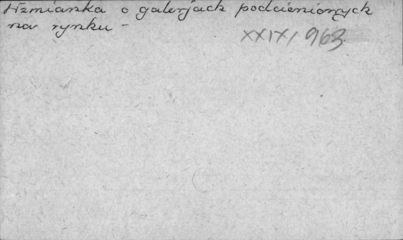 Wzmianka o galerjach podcieniowych
na rynku -
XXIX/963